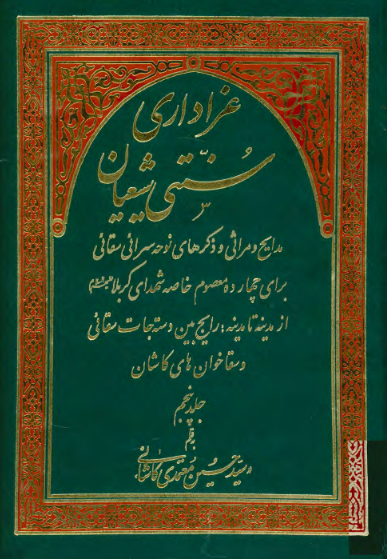 عزاداری
سنتی شیعیان
مدایح و مراثی و ذکرهای نوحه سرائی سقائی
برای چهارده معصوم خاصه شهدای کربلا
از مدینه تا مدینه، رایج بین دسته جات سقائی
و سقاخوان های کاشان
جلد پنجم
بقلم
سید حسین معتمدی کاشانی